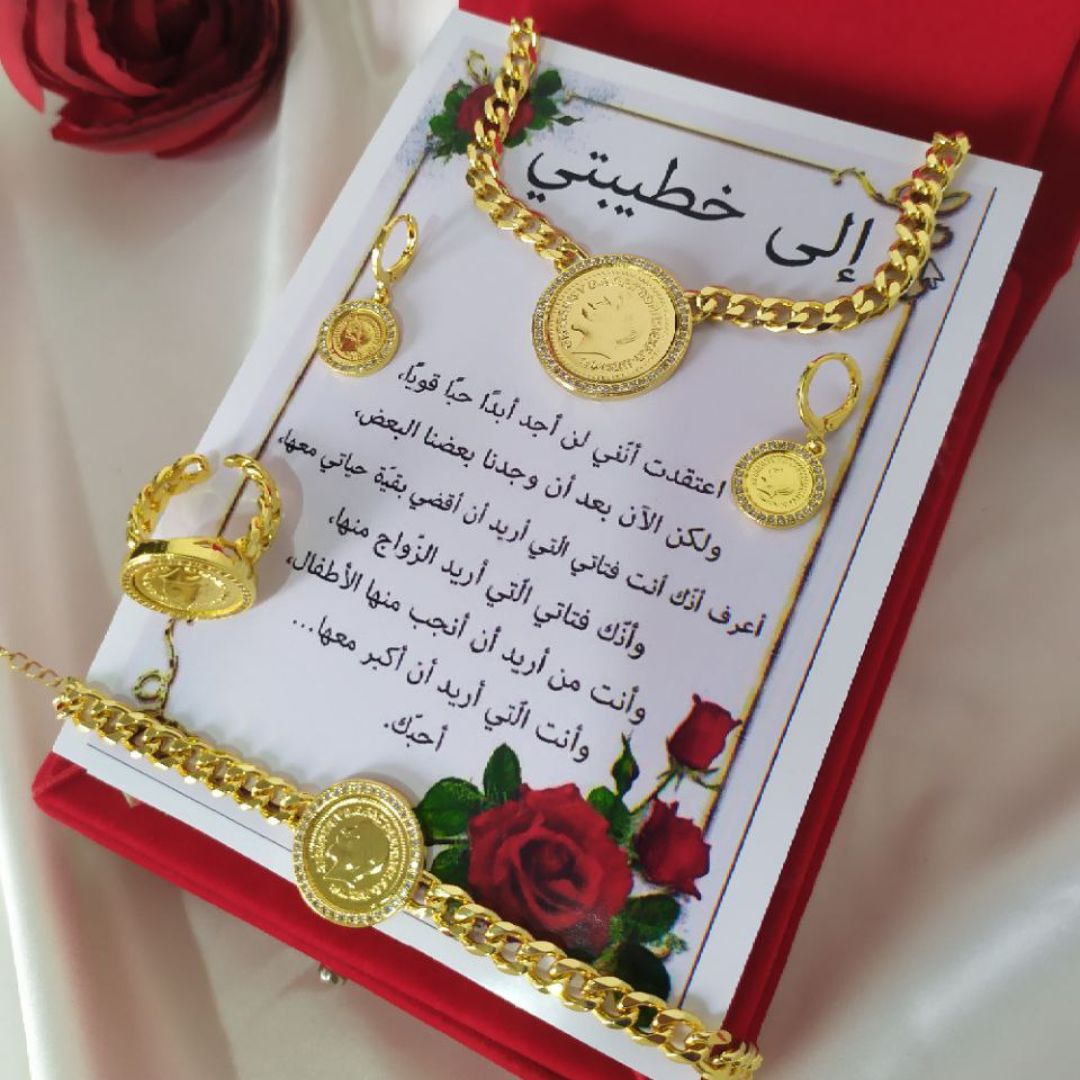 إلى خطيبتي
اعتقدت أنّني لن أجد أبدًا حبًا قويًا،
ولكن الآن بعد أن وجدنا بعضنا البعض،
أعرف أنّك أنت فتاتي الّتي أريد أن أقضي بقيّة حياتي معها،
وأنّك فتاتي الّتي أريد الزّواج منها،
وأنت من أريد أن أنجب منها الأطفال،
وأنت الّتي أريد أن أكبر معها...
أحبّك.